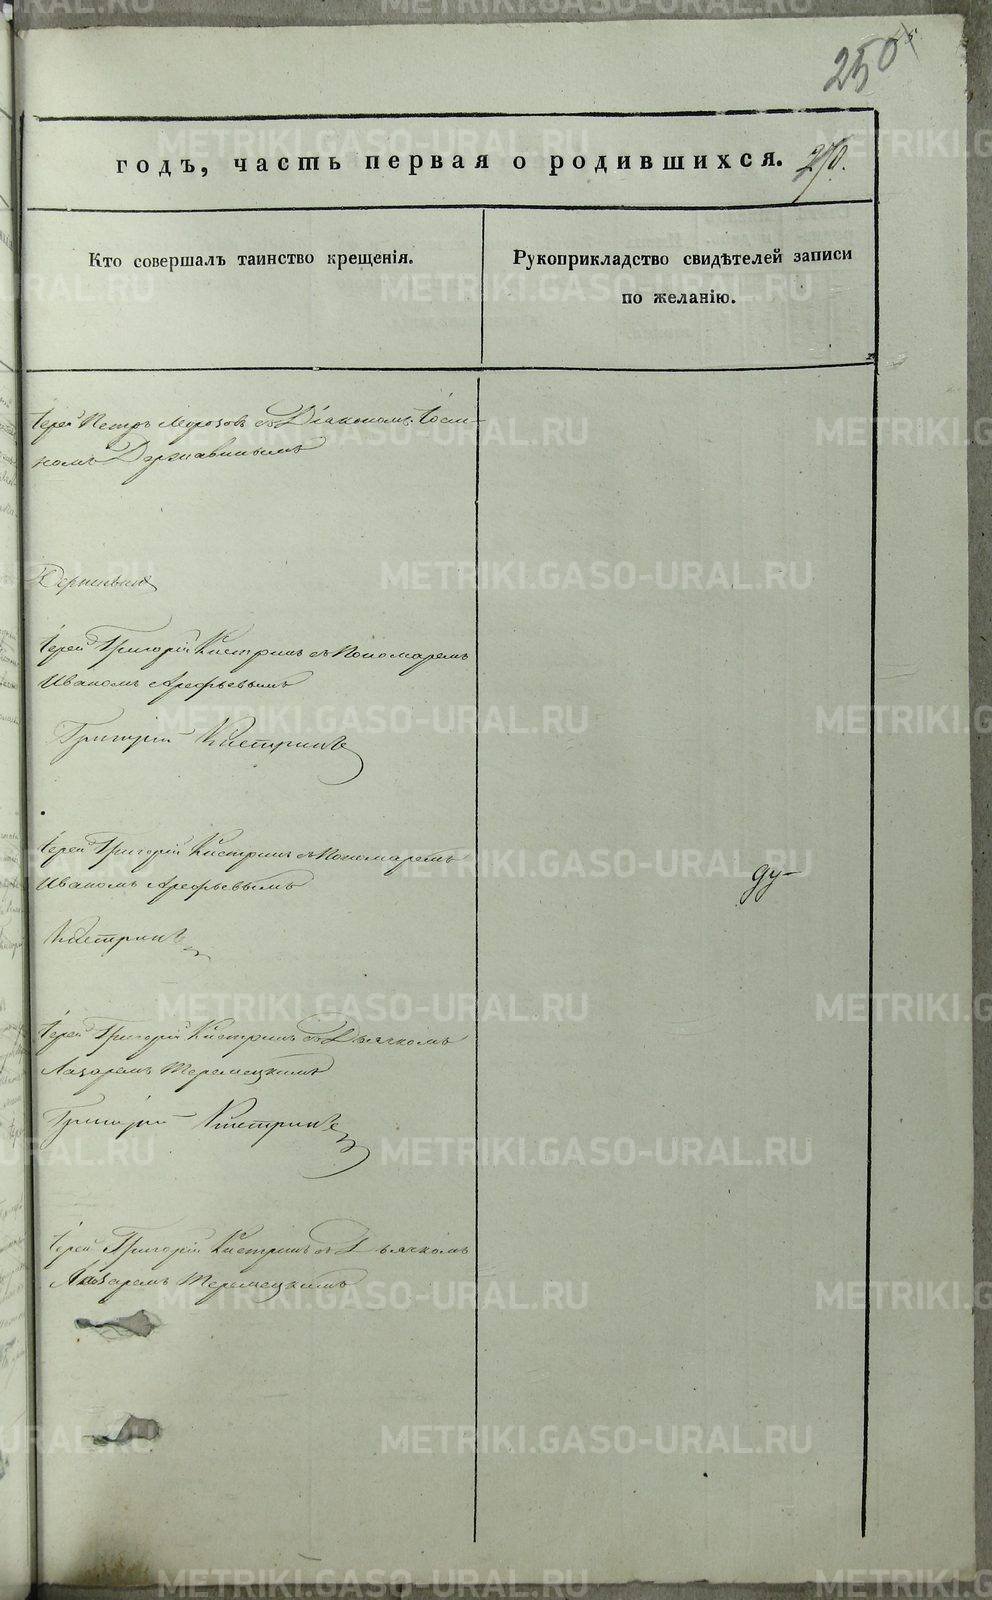 250
годъ, часть первая о родившихся. 270.
Кто совершалъ таинство крещенія.
Рукоприкладство свидѣтелей записи
по желанію.
Іерей Петръ Морозовъ съ Діакономъ Іоси-
комъ Державинымъ
Іерей Григорій Кистринъ съ Пономаремъ
Иваномъ Арефьевымъ
Григорій Кистринъ
Іерей Григорій Кистринъ съ Пономаремъ
Иваномъ Арефьевымъ
ду-
Кистринъ
Іерей Григорій Кистринъ съ Дьячкомъ
Лазаремъ Теремецкимъ
Григорій Кистринъ
Іерей Григорій Кистринъ съ Дьячкомъ
Лазаремъ Теремецкимъ
METRIKI.GASO-URAL.RU